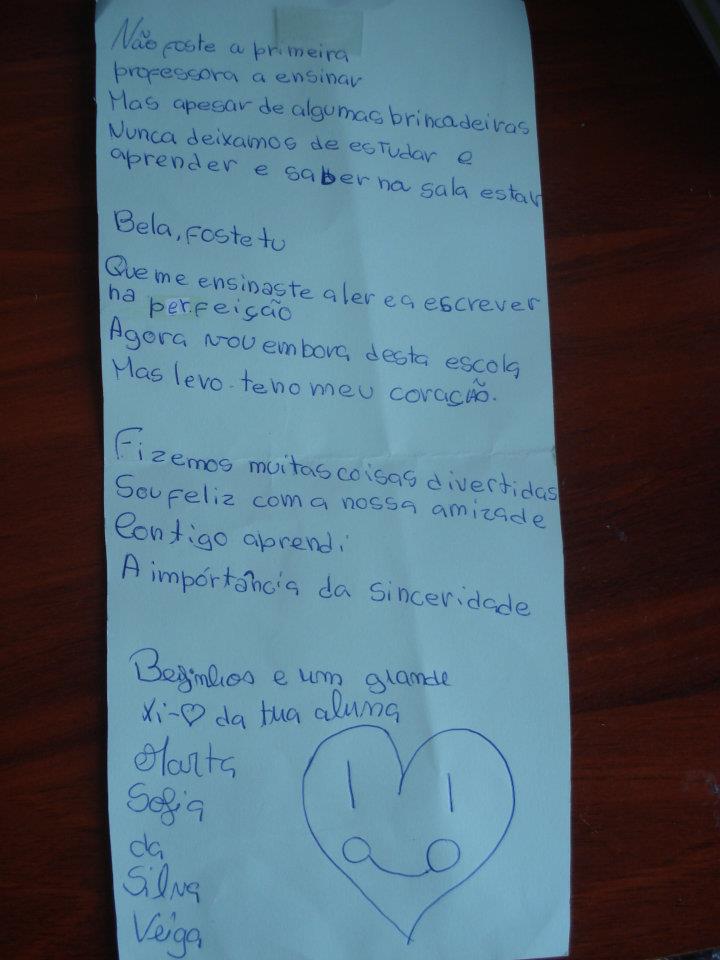 Não foste a primeira
professora a ensinar
Mas apesar de algumas brincadeiras
Nunca deixamos de estudar e
aprender e saber na sala estar
Bela, foste tu
Que me ensinaste a ler e a escrever
na perfeição
Agora vou embora desta escola
Mas levo-te no meu coração.
Fizemos muitas coisas divertidas
Sou feliz com a nossa amizade
Contigo aprendi
A impórtância da sinceridade
Bejinhos e um grande
Xi-♡ da tua aluna
Marta
Sofia
da
Silva
Veiga